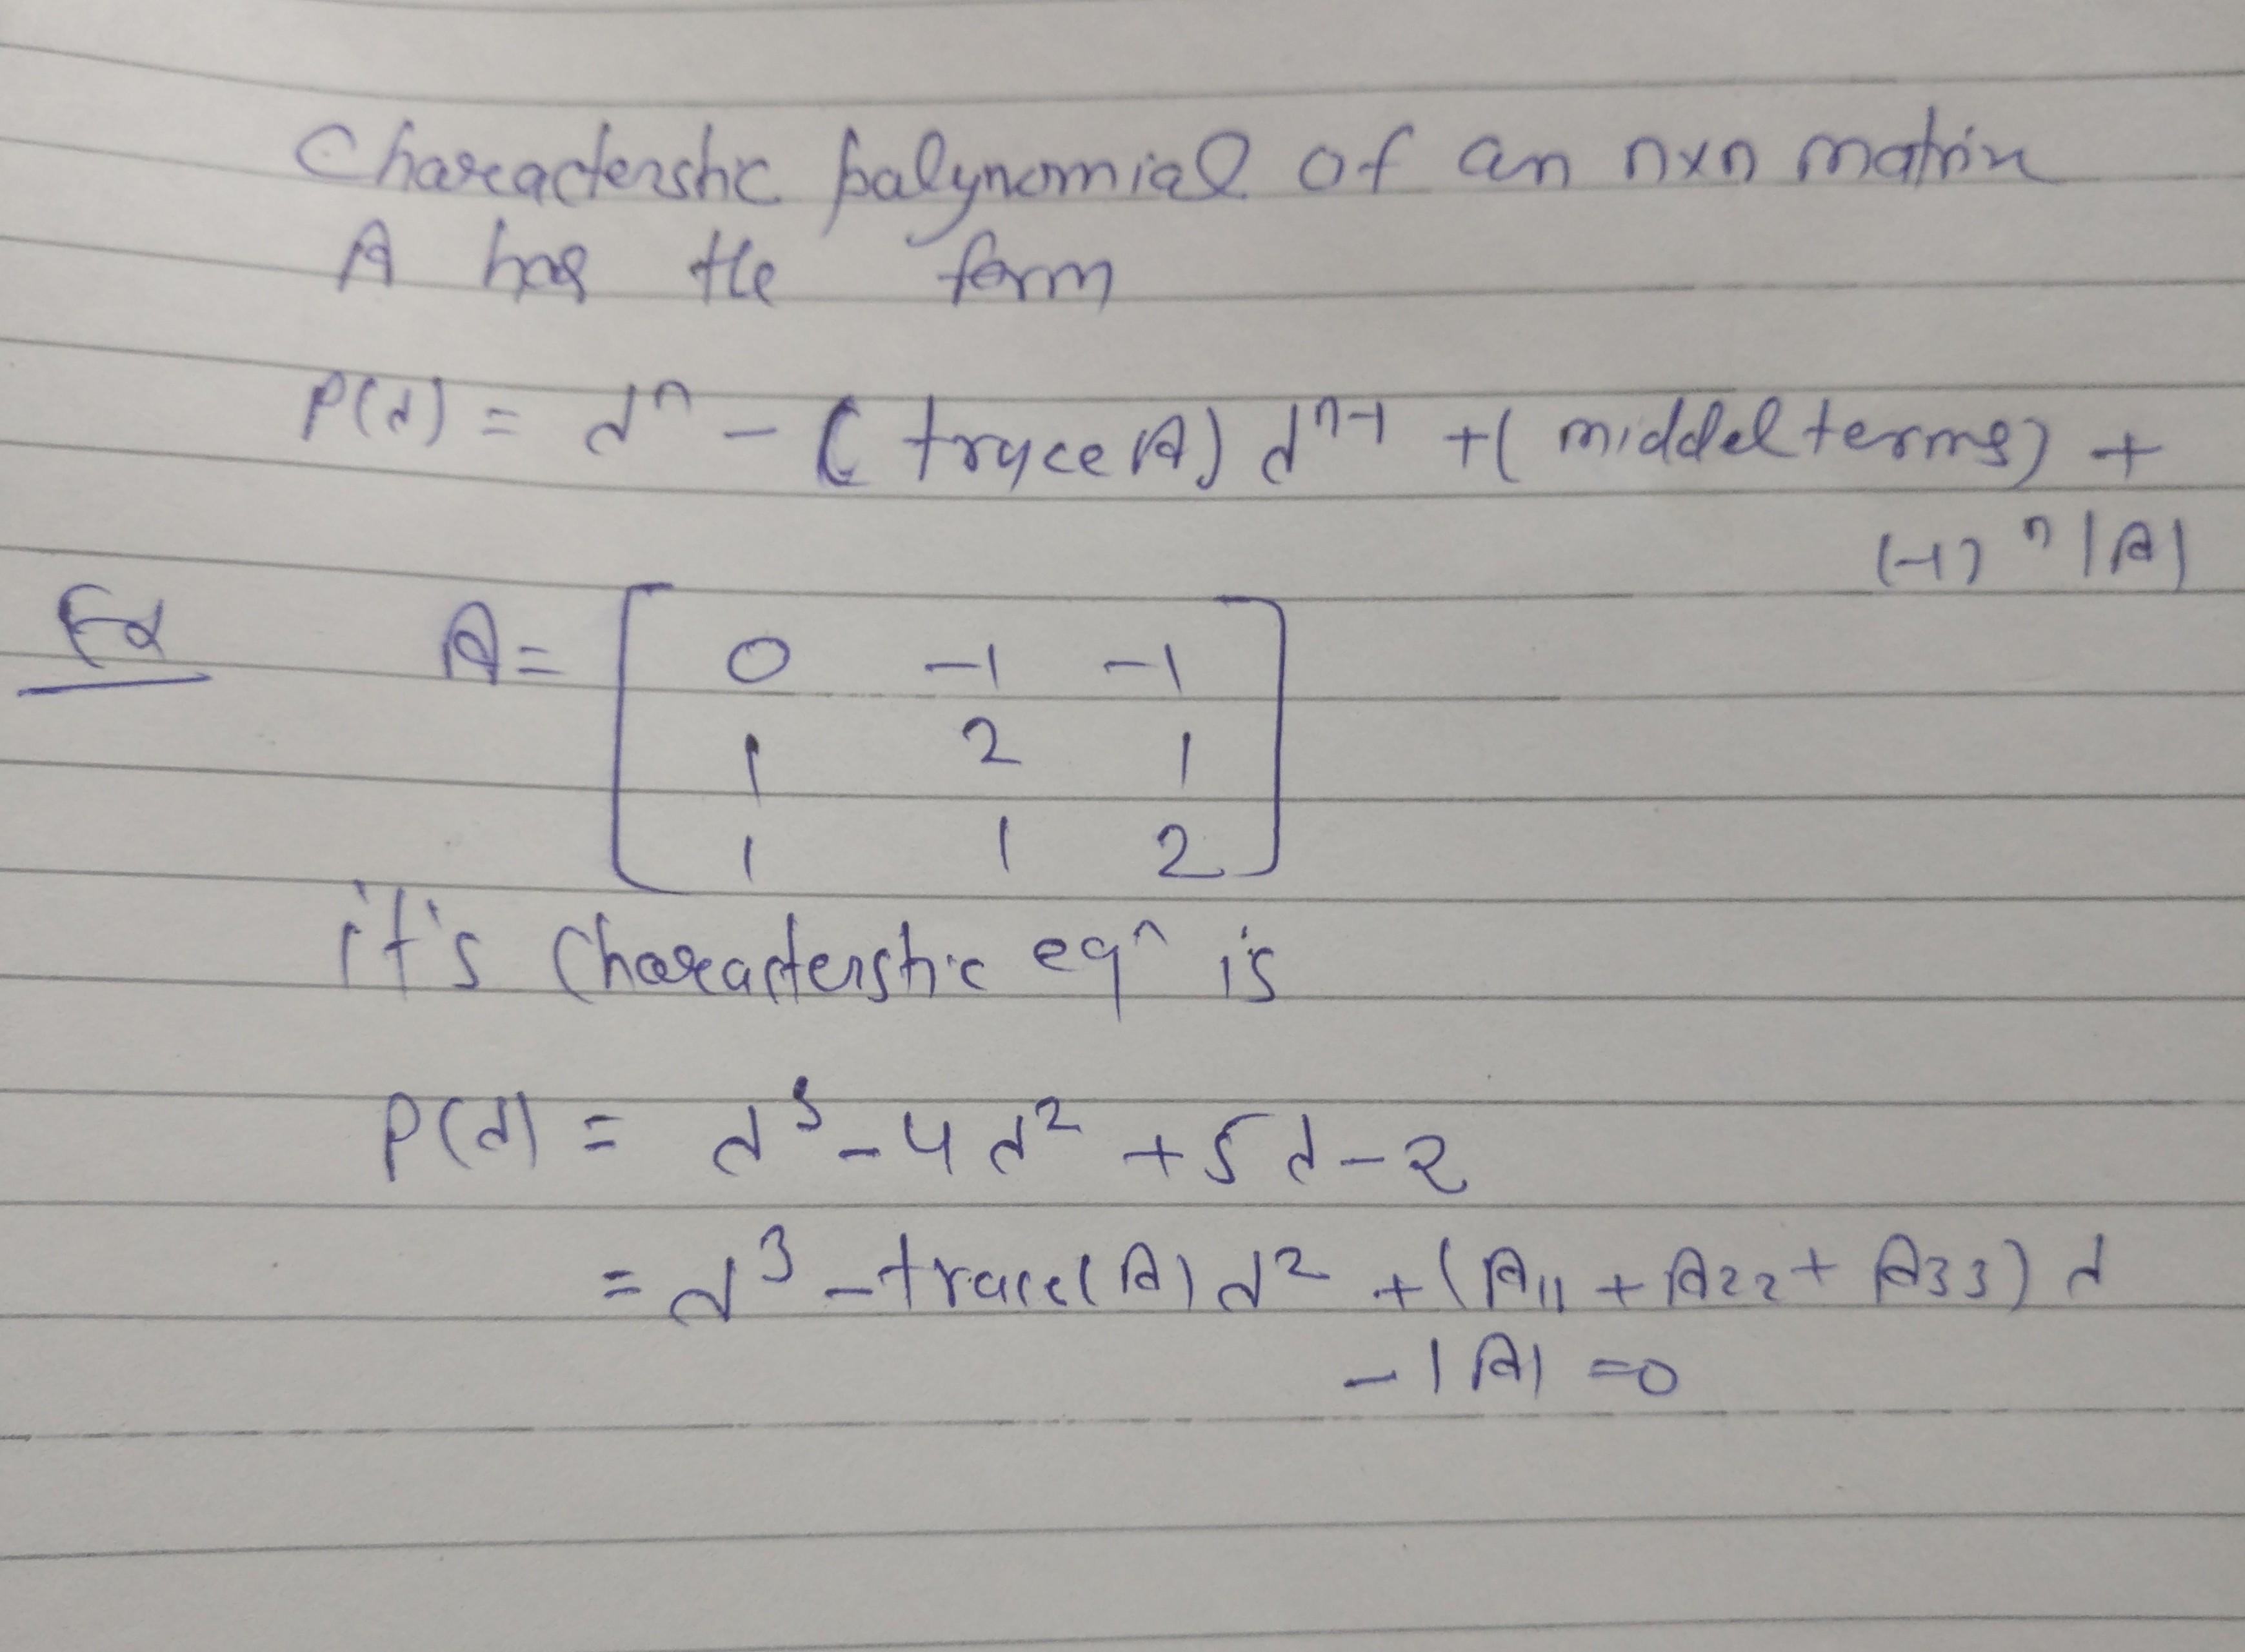 Characterstic polynomial of an n×n matrix
A has the form
P(λ) = λⁿ - (trace A) λⁿ⁻¹ + (middel terms) +
(-1)ⁿ |A|
Ex A = [ 0 -1 -1
1 2 1
1 1 2 ]
it's characterstic eqⁿ is
P(λ) = λ³ - 4λ² + 5λ - 2
= λ³ - trace(A) λ² + (A₁₁ + A₂₂ + A₃₃) λ
- |A| = 0